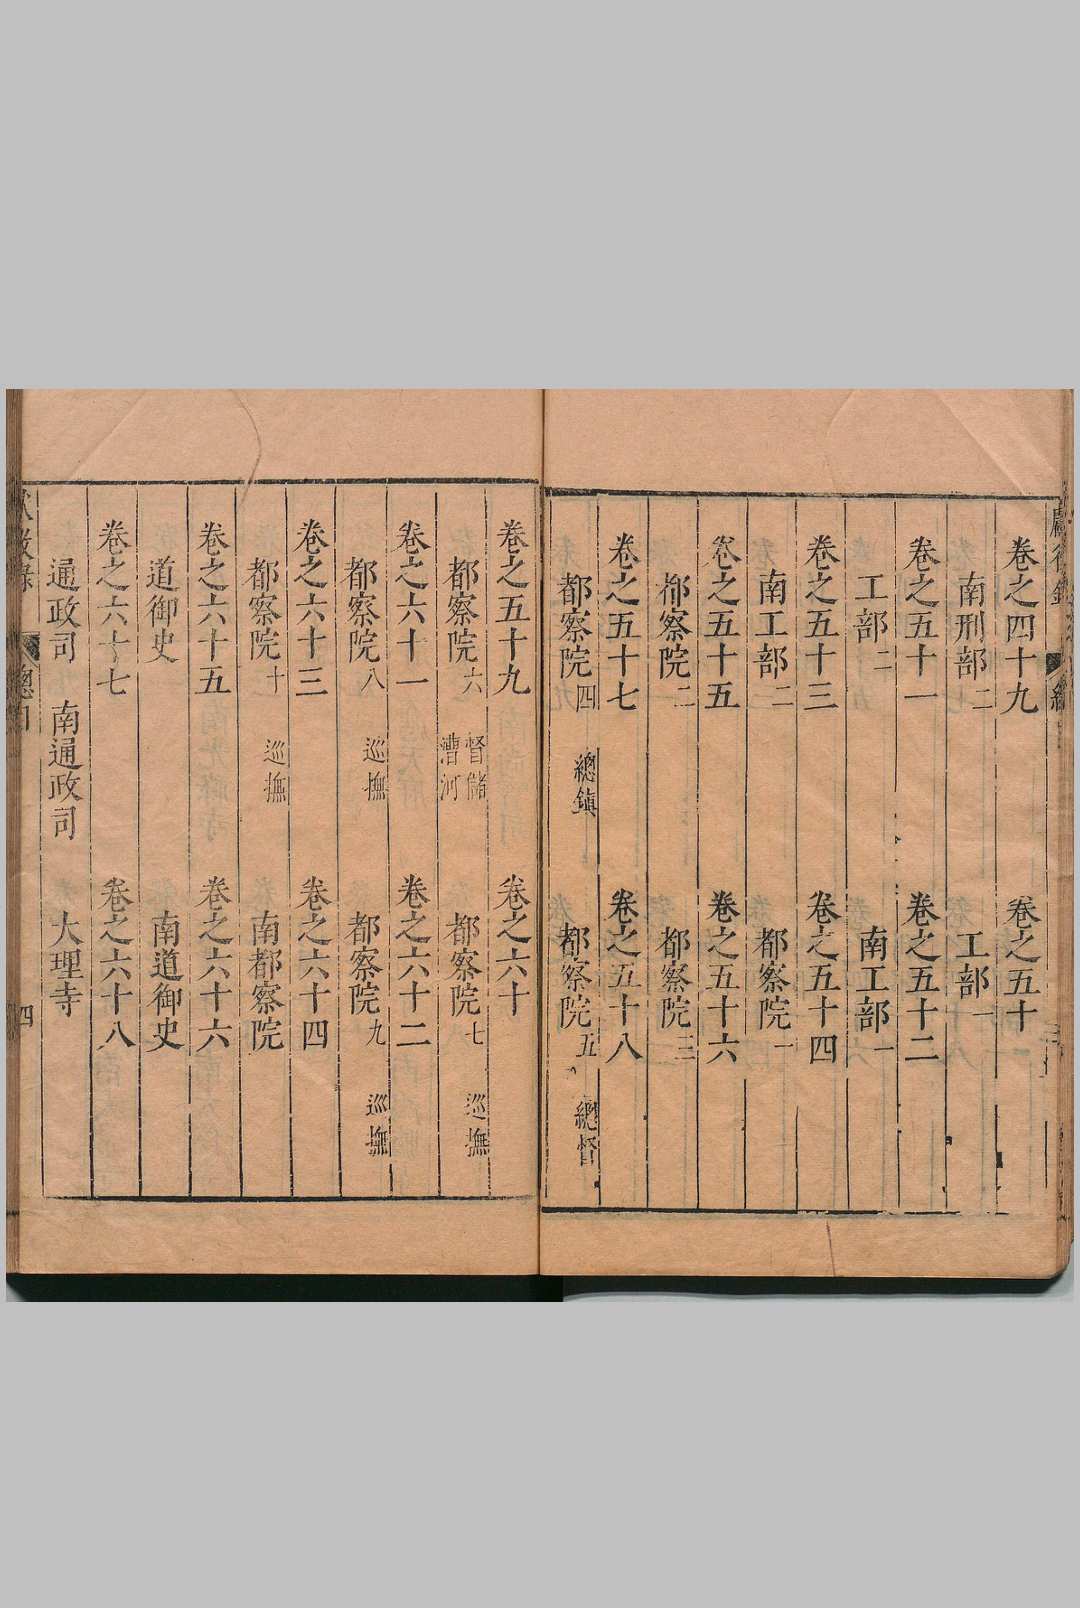 卷之四十九 卷之五十
南刑部二 工部一
卷之五十一 卷之五十二
工部二 南工部一
卷之五十三 卷之五十四
南工部二 都察院一
卷之五十五 卷之五十六
都察院二 都察院三
卷之五十七 卷之五十八
都察院四 總鎮 都察院五 總督
卷之五十九 卷之六十
都察院六 督儲 漕河 都察院七 巡撫
卷之六十一 卷之六十二
都察院八 巡撫 都察院九 巡撫
卷之六十三 卷之六十四
都察院十 巡撫 南都察院
卷之六十五 卷之六十六
道御史 南道御史
卷之六十七 卷之六十八
通政司 南通政司 大理寺
總目 四